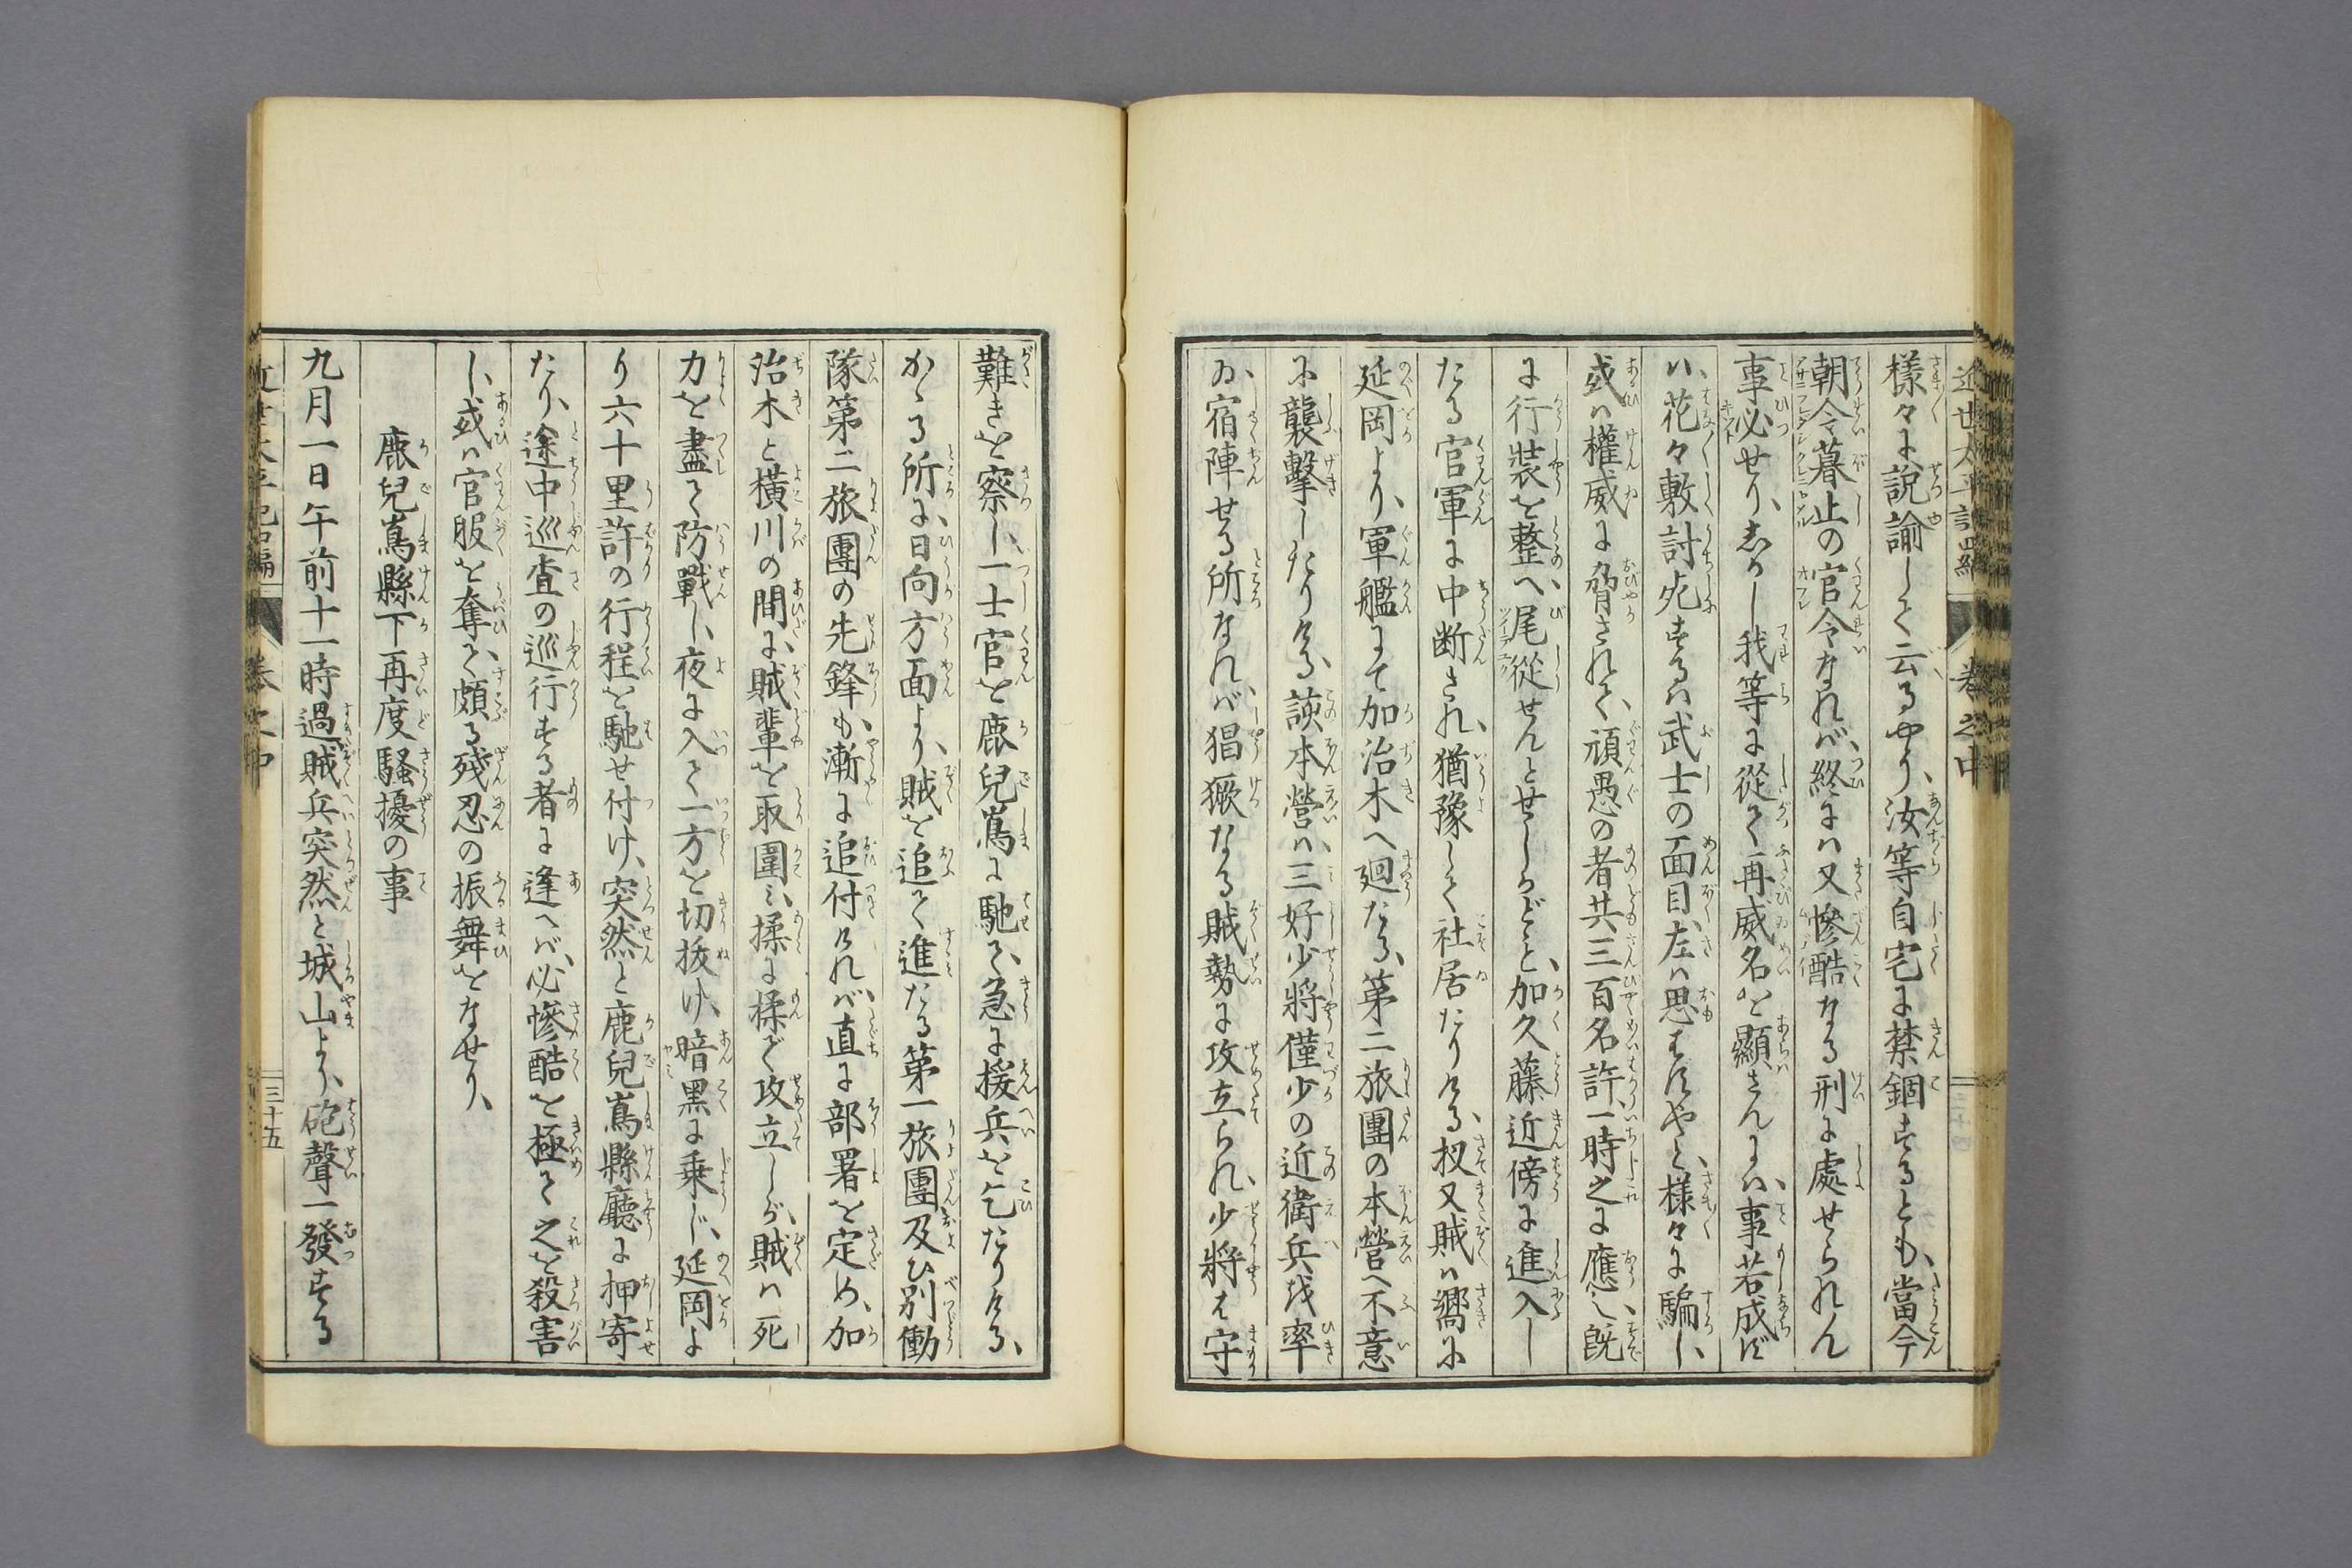 様々に説諭して云るやう、汝等自宅に禁錮するとも、當今
朝令暮止の官令なれバ、終にハ又慘酷なる刑に處せられん
事必せり、しかし我等に從て再威名を顯さんにハ、事若成ず
ハ、花々敷討死するハ武士の面目、左ハ思はずやと、様々に騙し、
或ハ權威に脅されて、頑愚の者共三百名許、一時之に應じ、既
に行裝を整へ、尾從せんとせしかども、加久藤近傍に進入し
たる官軍に中断され、猶豫して社居たりける、扨又賊ハ嚮に
延岡より、軍艦にて加治木へ廻たる、第二旅團の本營へ不意
に襲撃したりける、該本營ハ、三好少將僅少の近衞兵を率
ゐ、宿陣せる所なれバ、猖獗なる賊勢に攻立られ、少將も守
難きを察し、一士官を鹿兒嶌に馳て、急に援兵を乞たりける、
かゝる所に、日向方面より、賊を追て進たる第一旅團及ひ別働
隊第二旅團の先鋒も、漸に追付けれバ、直に部署を定め、加
治木と横川の間に、賊輩を取圍ミ、揉に揉で攻立しが、賊ハ死
力を盡て防戰し、夜に入て一方を切抜け、暗黒に乗じ、延岡よ
り六十里許の行程を馳せ付け、突然と鹿兒嶌縣廳に押寄
たり、途中巡査の巡行する者に逢へバ、必慘酷を極て之を殺害
し、或ハ官服を奪て、頗る殘忍の振舞をなせり、
鹿兒嶌縣下再度騒擾の事
九月一日午前十一時過賊兵突然と城山より、砲聲一發する
近世太平記四編 卷之中
卷之中 三十五